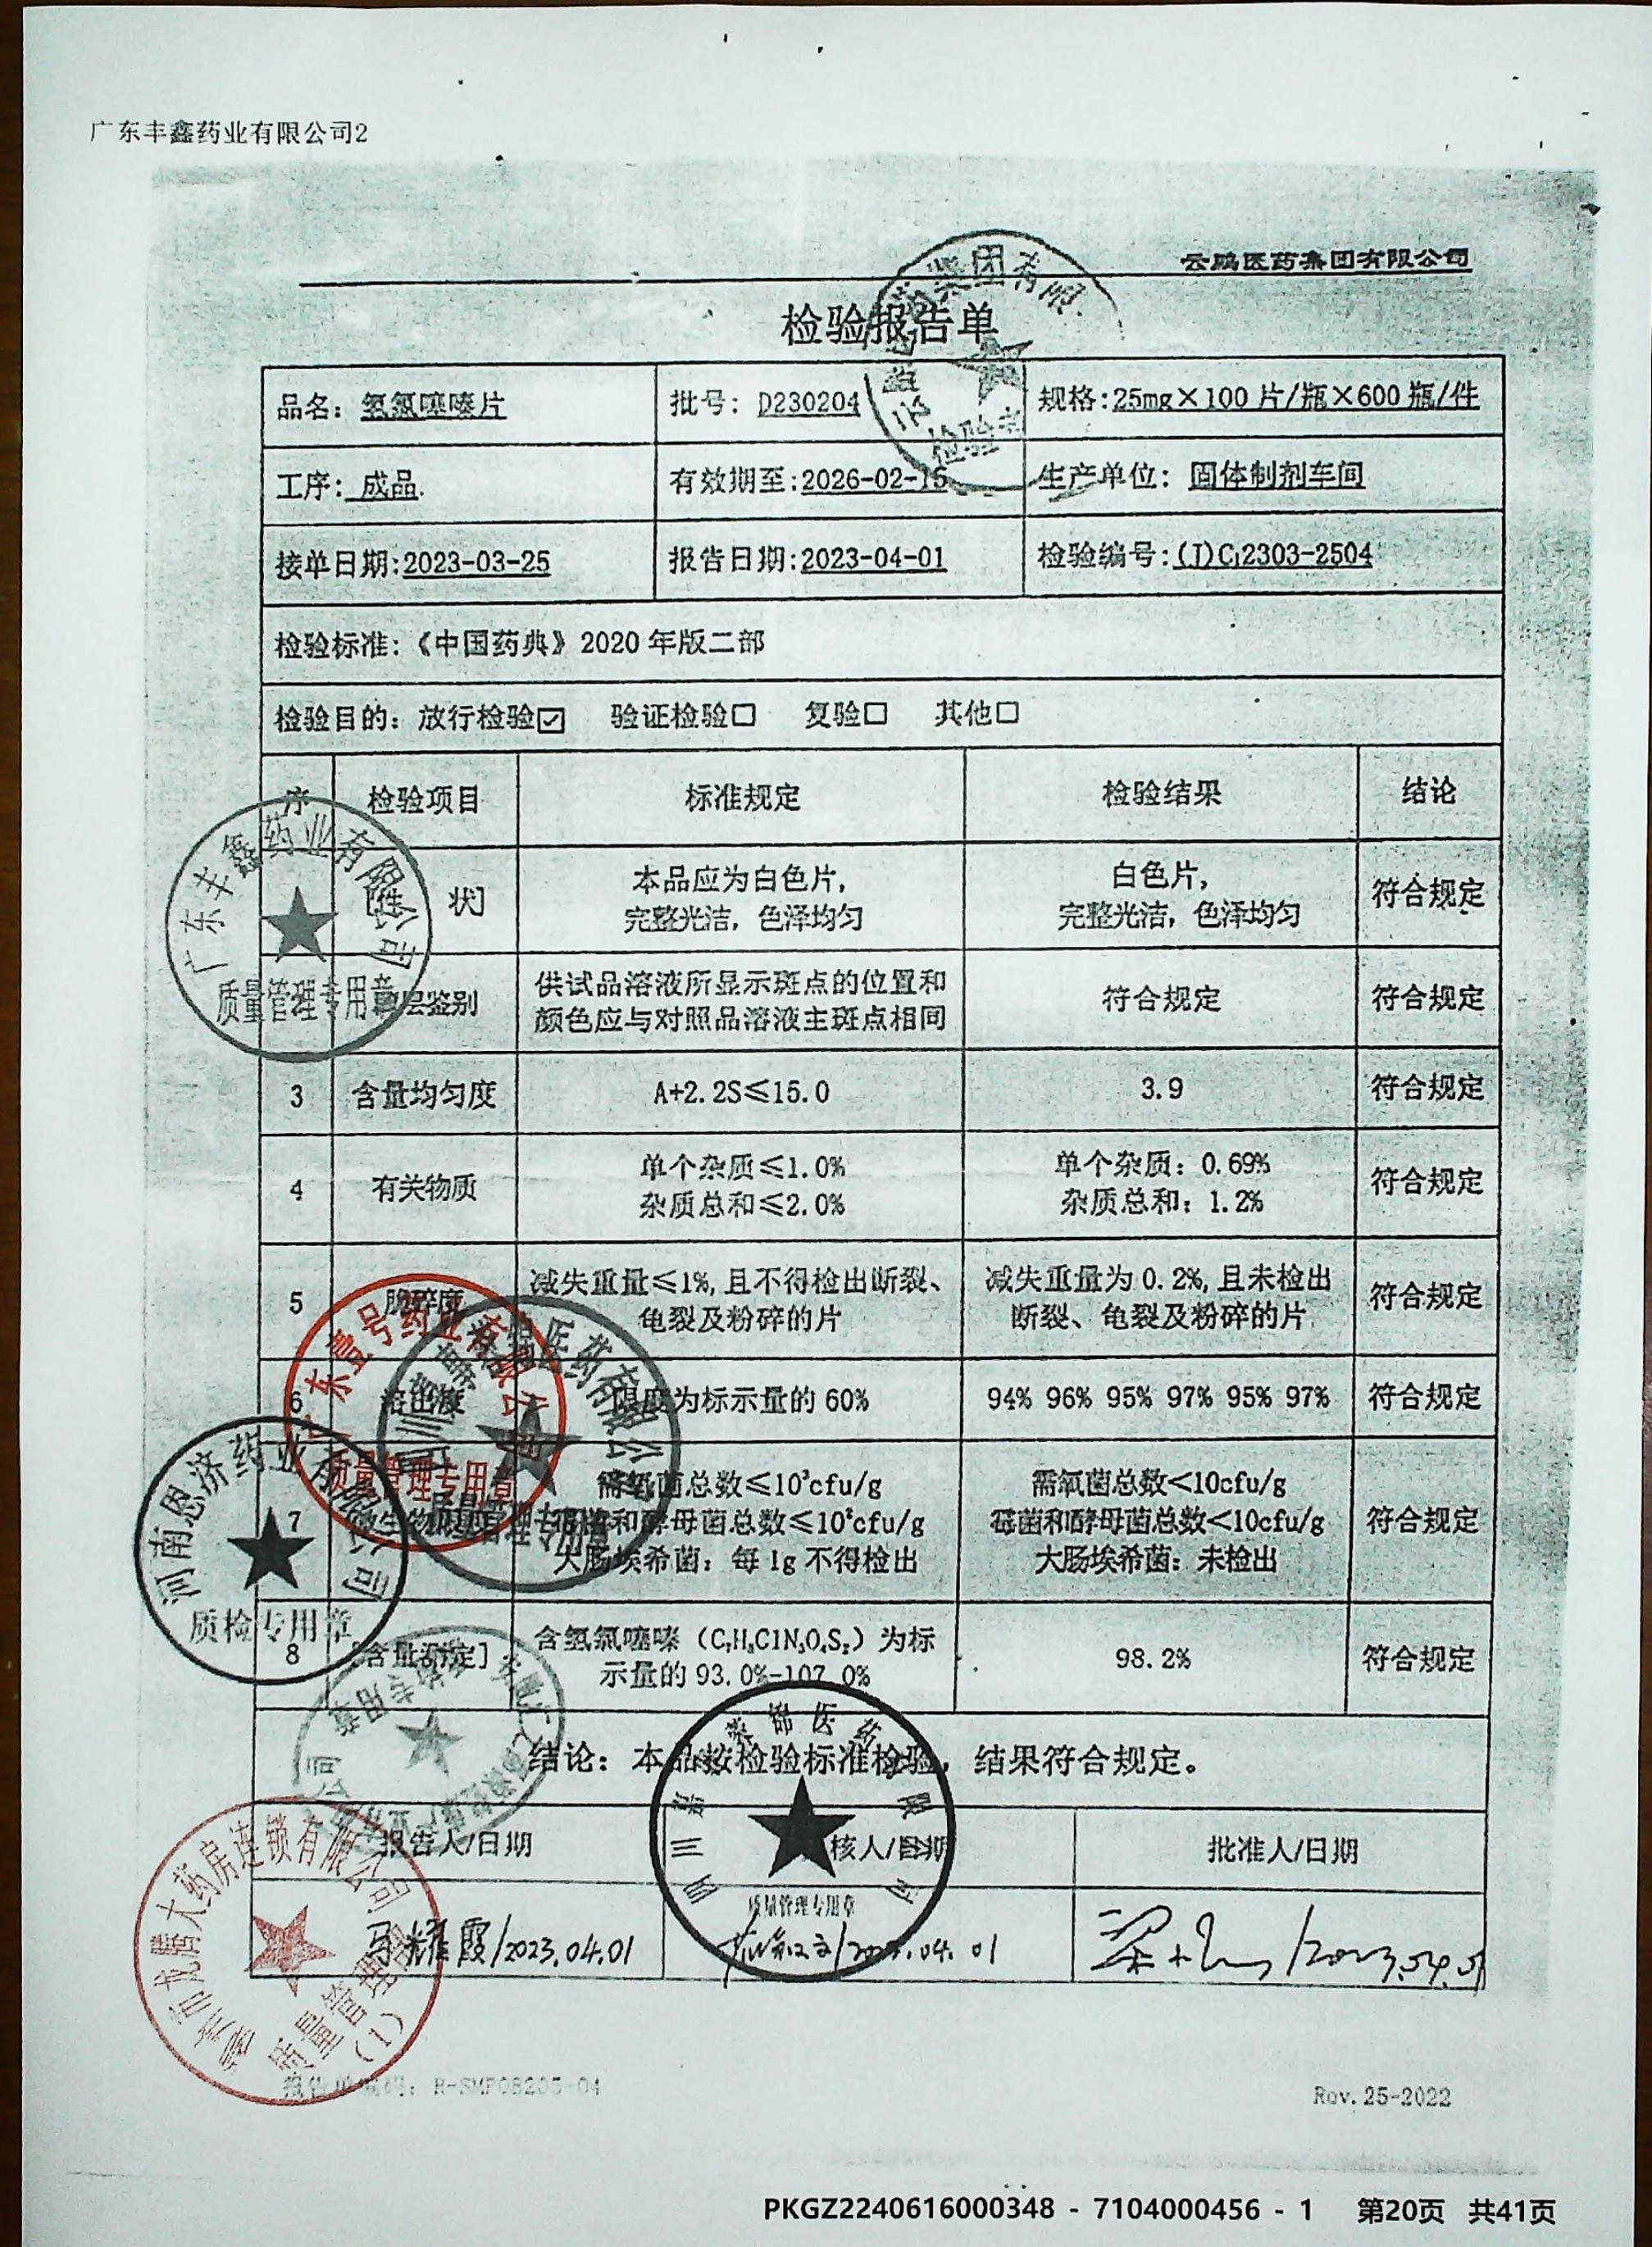 广东丰鑫药业有限公司2
云鹏医药集团有限公司
检验报告单
品名：氢氯噻嗪片 批号：D230204 规格：25mg×100片/瓶×600瓶/件
工序：成品 有效期至：2026-02-15 生产单位：固体制剂车间
接单日期：2023-03-25 报告日期：2023-04-01 检验编号：(J)C₁2303-2504
检验标准：《中国药典》2020年版二部
检验目的：放行检验☑ 验证检验□ 复验□ 其他□
序 检验项目 标准规定 检验结果 结论
状] 本品应为白色片， 白色片， 符合规定
完整光洁，色泽均匀 完整光洁，色泽均匀
层鉴别 供试品溶液所显示斑点的位置和 符合规定 符合规定
颜色应与对照品溶液主斑点相同
3 含量均匀度 A+2.2S≤15.0 3.9 符合规定
4 有关物质 单个杂质≤1.0% 单个杂质：0.69% 符合规定
杂质总和≤2.0% 杂质总和：1.2%
5 脆碎度 减失重量≤1%，且不得检出断裂、 减失重量为0.2%，且未检出 符合规定
龟裂及粉碎的片 断裂、龟裂及粉碎的片
6 溶出度 限度为标示量的60% 94% 96% 95% 97% 95% 97% 符合规定
7 需氧菌总数≤10³cfu/g 需氧菌总数<10cfu/g 符合规定
霉菌和酵母菌总数≤10²cfu/g 霉菌和酵母菌总数<10cfu/g
大肠埃希菌：每1g不得检出 大肠埃希菌：未检出
8 [含量测定] 含氢氯噻嗪（C₇H₈ClN₃O₄S₂）为标 98.2% 符合规定
示量的93.0%-107.0%
结论：本品按检验标准检验，结果符合规定。
报告人/日期 核人/日期 批准人/日期
马耀霞/2023.04.01
广东丰鑫药业有限公司
质量管理专用章
广东壹号药业有限公司
质量管理专用章
河南恩济药业有限公司
质检专用章
质量管理专用章
大药房连锁有限公司
质量管理
(1)
R-SMP08205-04
Rev.25-2022
PKGZ2240616000348 - 7104000456 - 1 第20页 共41页